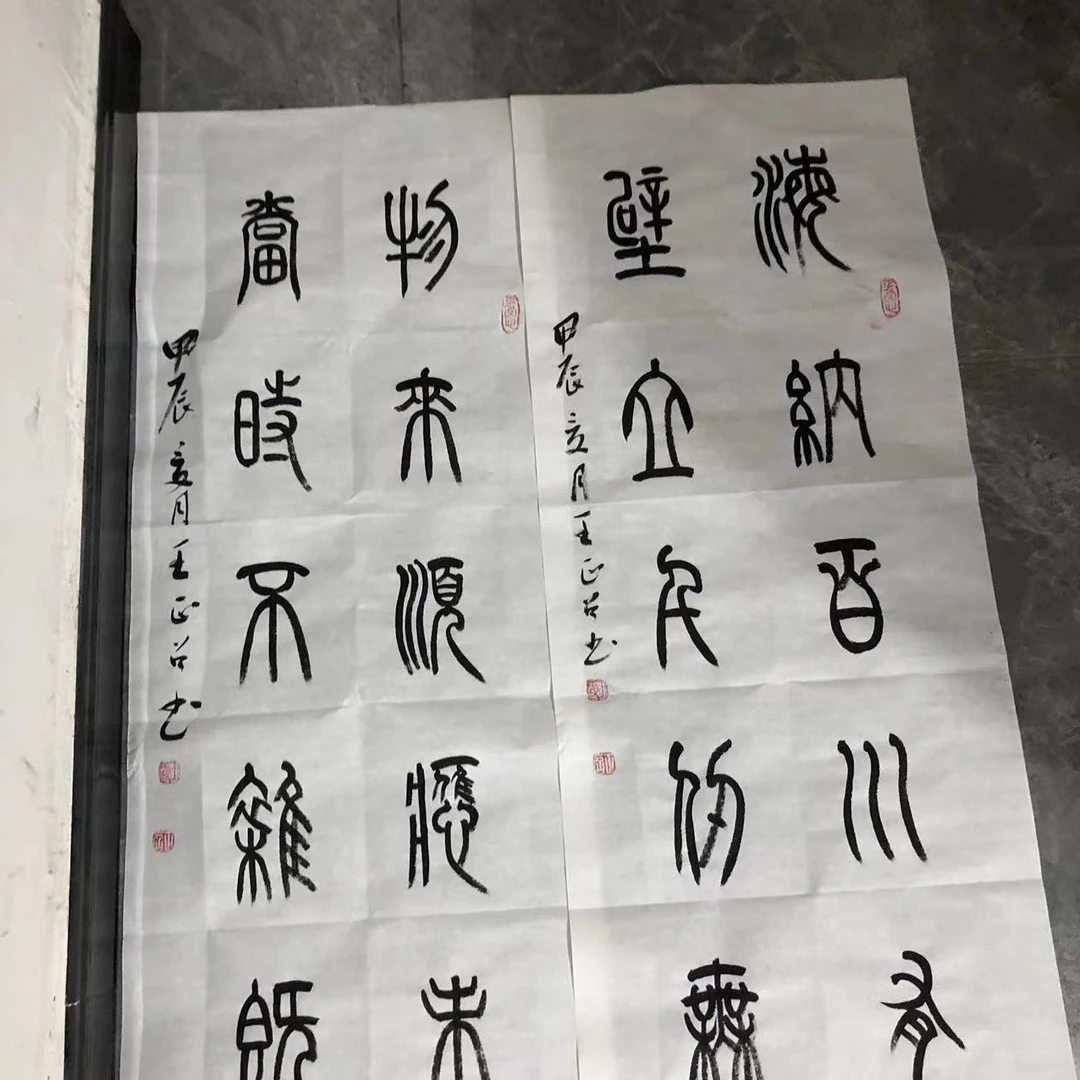 海納百川有
壁立千仞無
甲辰夏月王正书
物來順應未
當時不雜既
甲辰夏月王正书